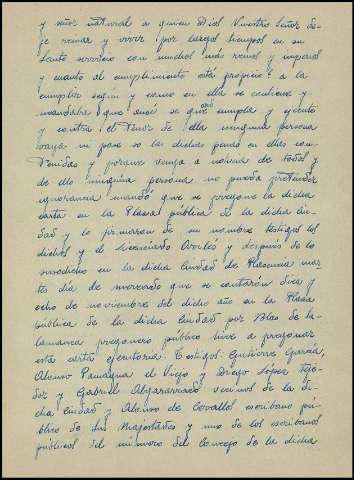 y señor natural a quien Dios Nuestro Señor de-
je reinar y vivir por largos tiempos en su
santo servicio con muchos más reinos y imperios
y cuanto al cumplimiento está propicio a la
cumplir según y como en ella se contiene y
mandaba que ansí se que cumpla y ejecute
y contra el tenor de ella ninguna persona
vaya ni pase so las dichas penas en ellas con-
tenidas y porque venga a noticia de todos y
de ello ninguna persona no pueda pretender
ignorancia mando que se pregone la dicha
carta en la Plaza pública de la dicha Ciu-
dad y lo firmaron de su nombre testigos los
dichos y el Licenciado Cortés y después de lo
susodicho en la dicha Ciudad de Plasencia mar-
tes día de mercado que se contarán diez y
ocho de noviembre del dicho año en la Plaza
pública de la dicha Ciudad por Blas de Sa-
lamanca pregonero público hice a pregonar
esta carta ejecutoria. Testigos: Gutierre García,
Alonso Paniagua el Viejo y Diego López Teje-
dor y Gabriel Algararriado vecinos de la di-
cha Ciudad y Alonso de Cevallos escribano pú-
blico de Sus Majestades y uno de los escribanos
públicos del número del Concejo de la dicha